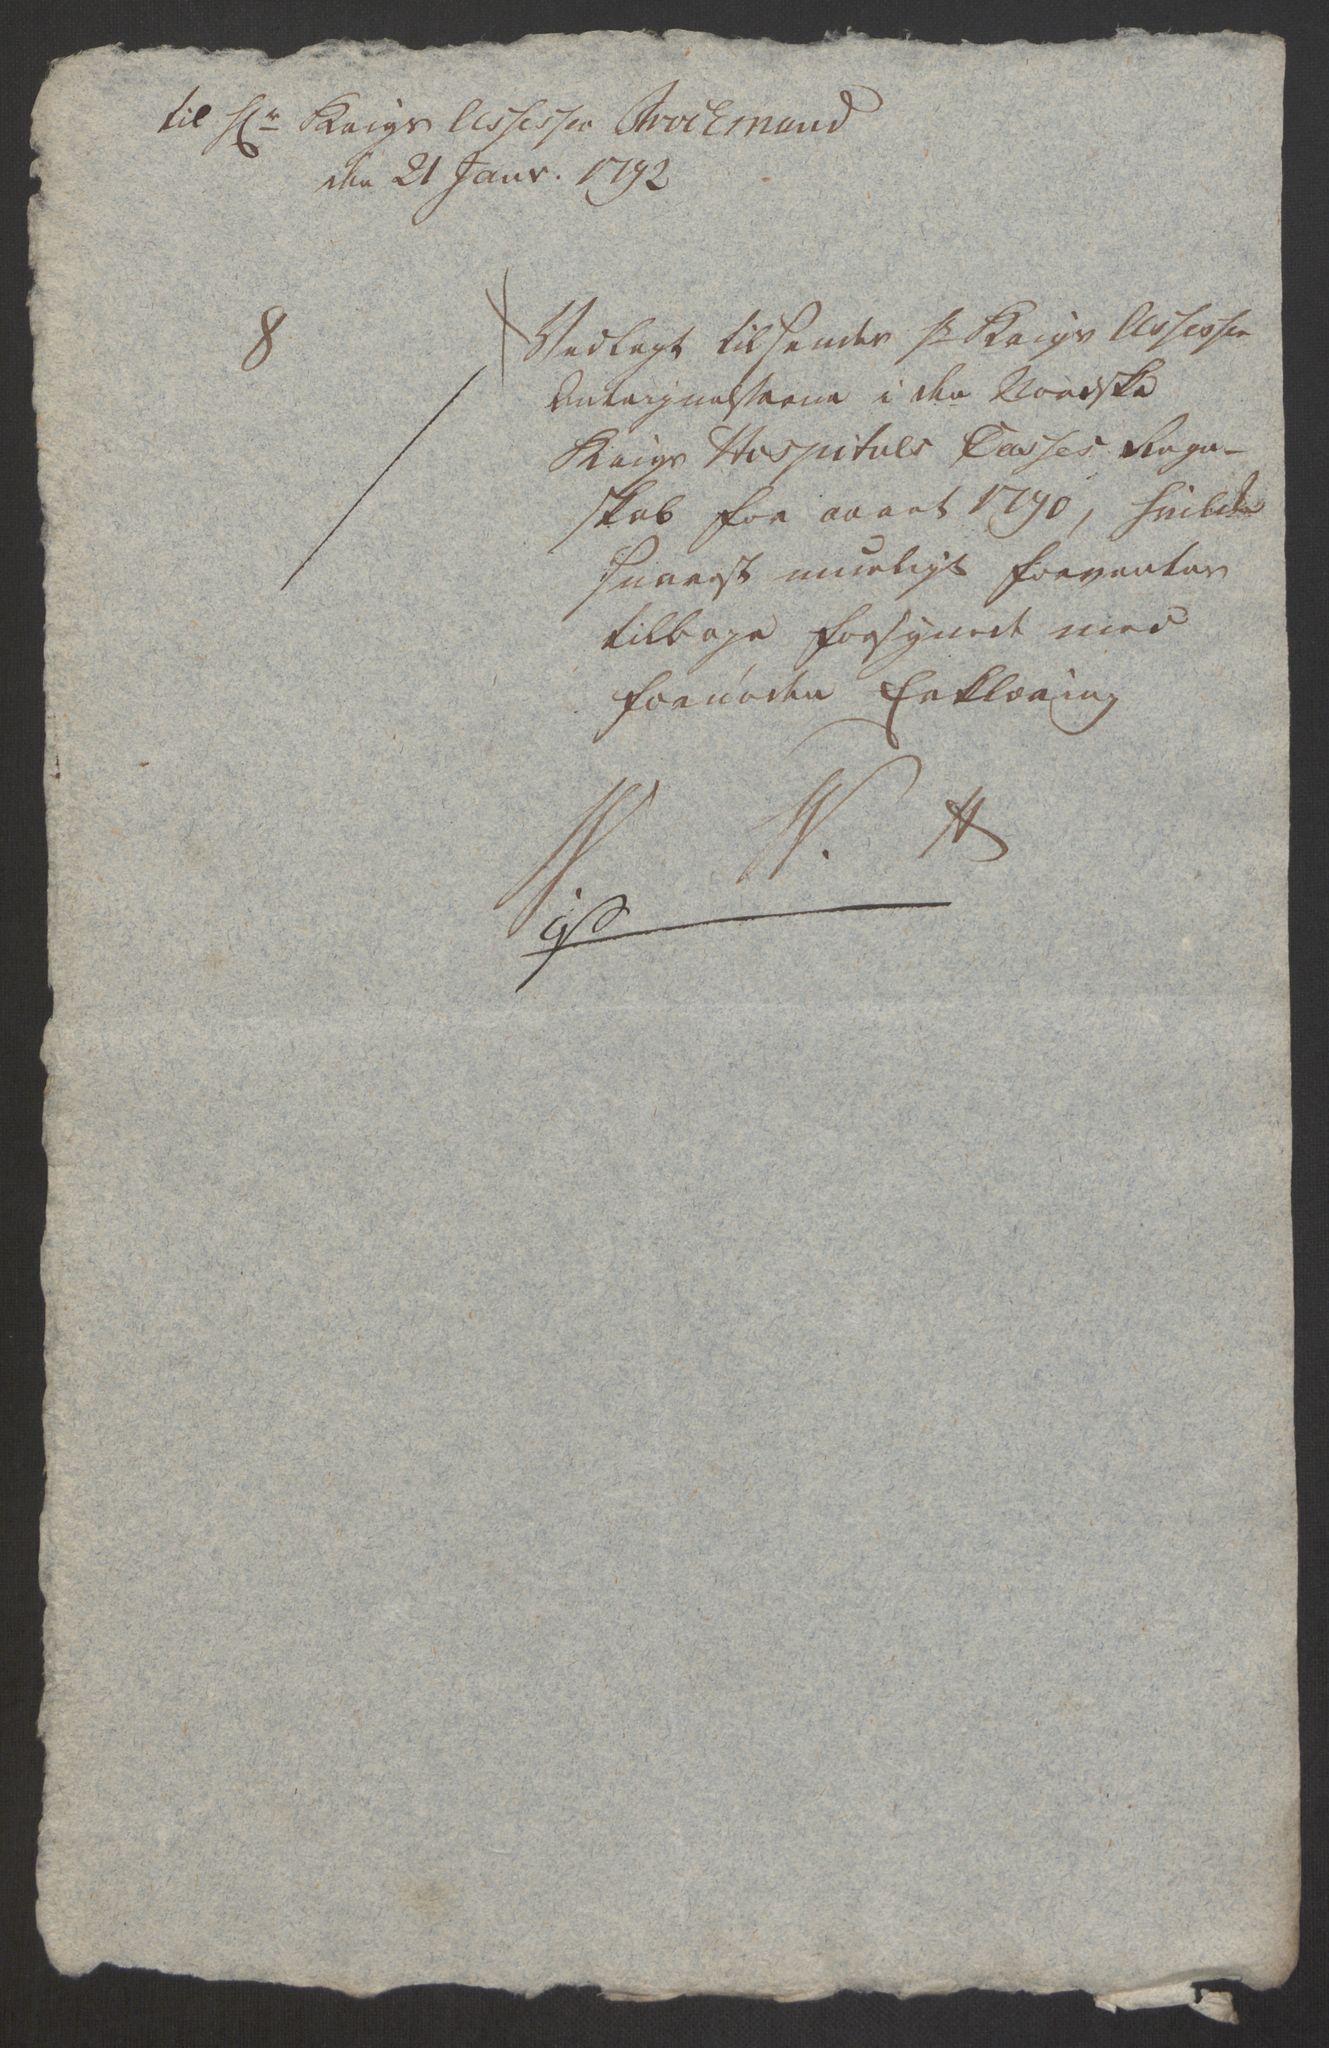 til Hr Krigs Assessor Brochmand
den 21 Janv. 1792
8
Vedlagt tilsendes Hr Krigs Assessor
Antegnelserne i den Norske
Krigs Hospitals Casses Regn-
skab for aaret 1790, hvilke
snarest mueligt forventes
tilbage forsynet med
fornøden Erklæring
W W. H